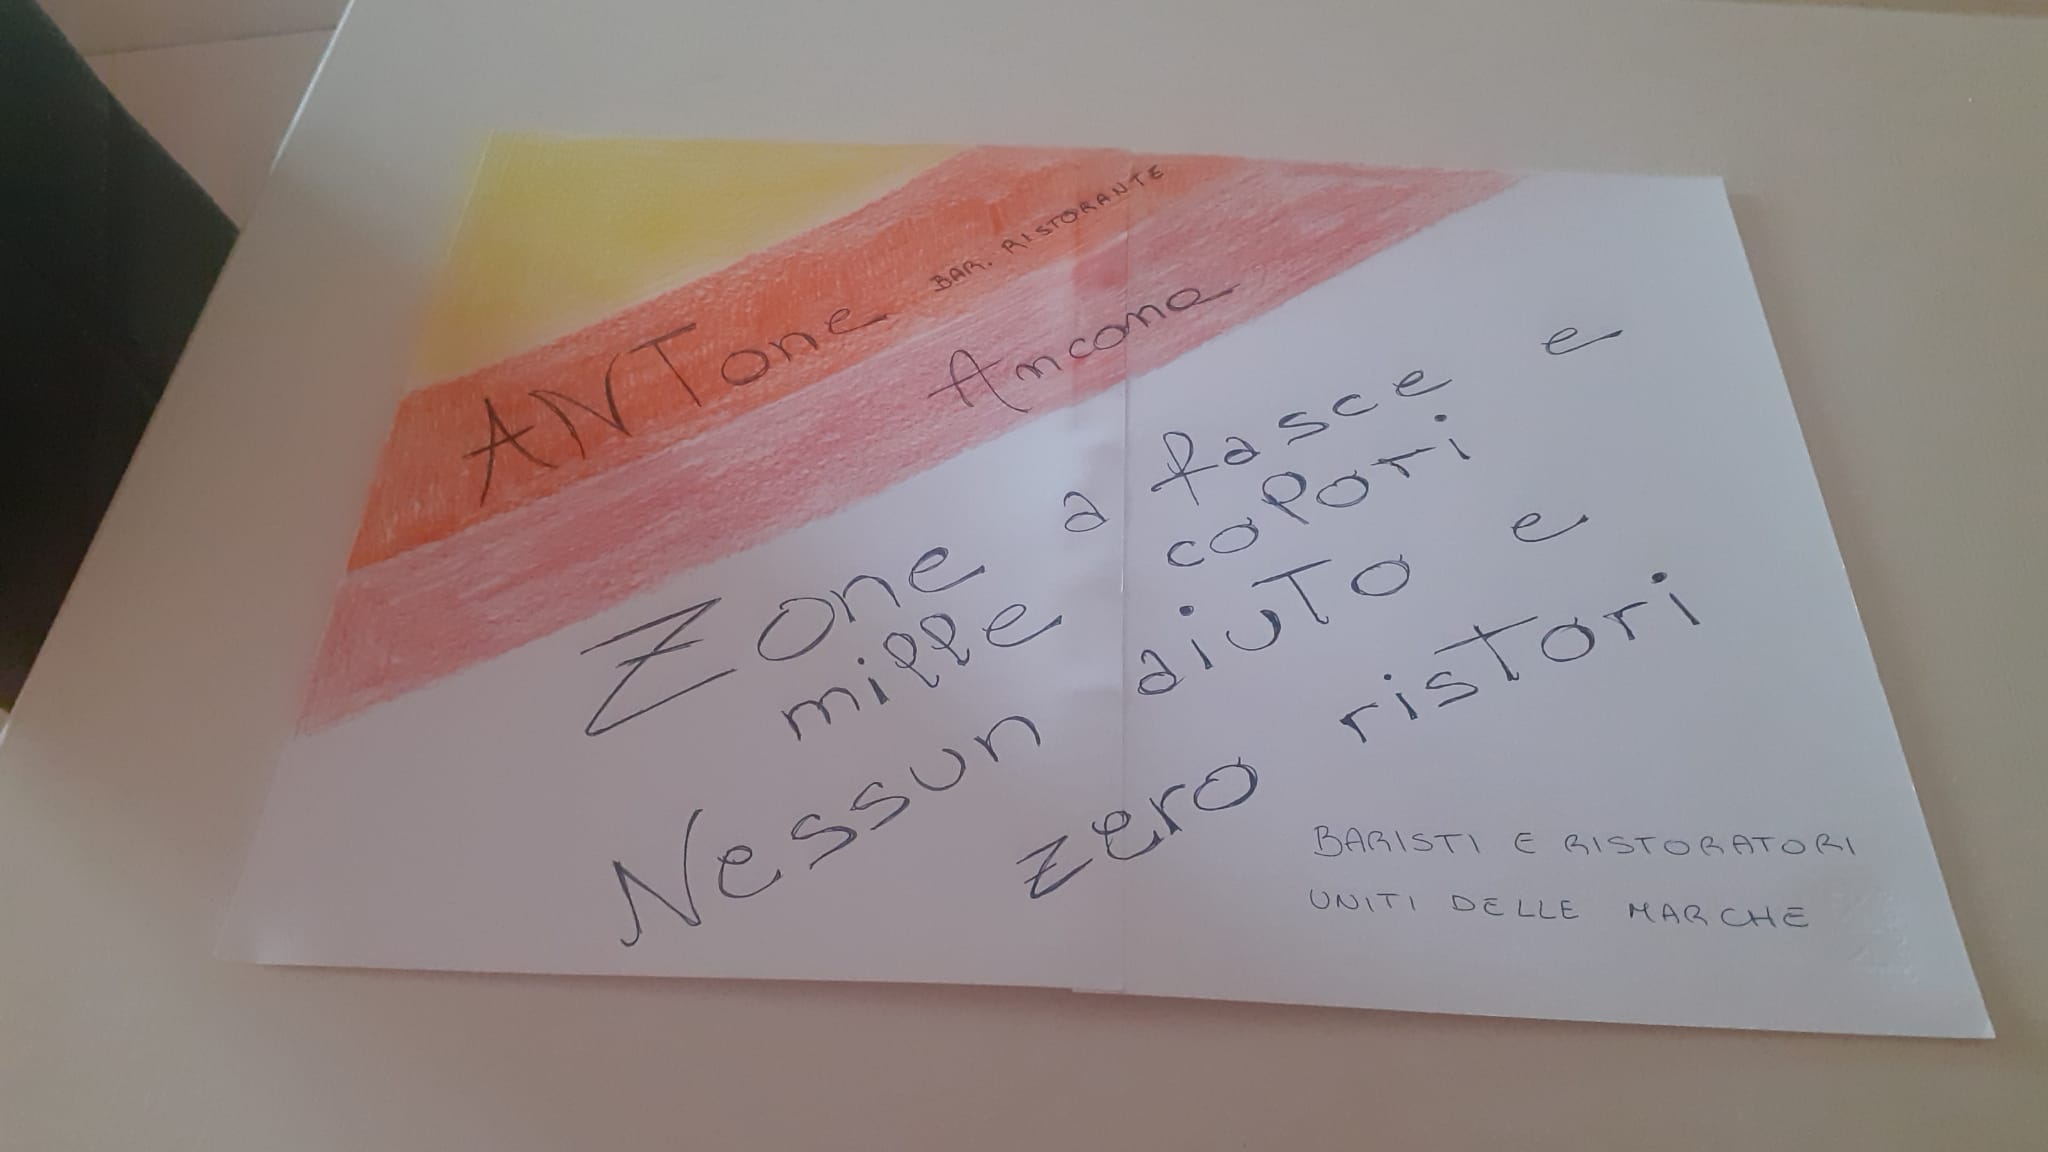 ANTone BAR. RISTORANTE
Ancona
Zone a fasce e
mille colori
Nessun aiuto e
zero ristori
BARISTI E RISTORATORI
UNITI DELLE MARCHE